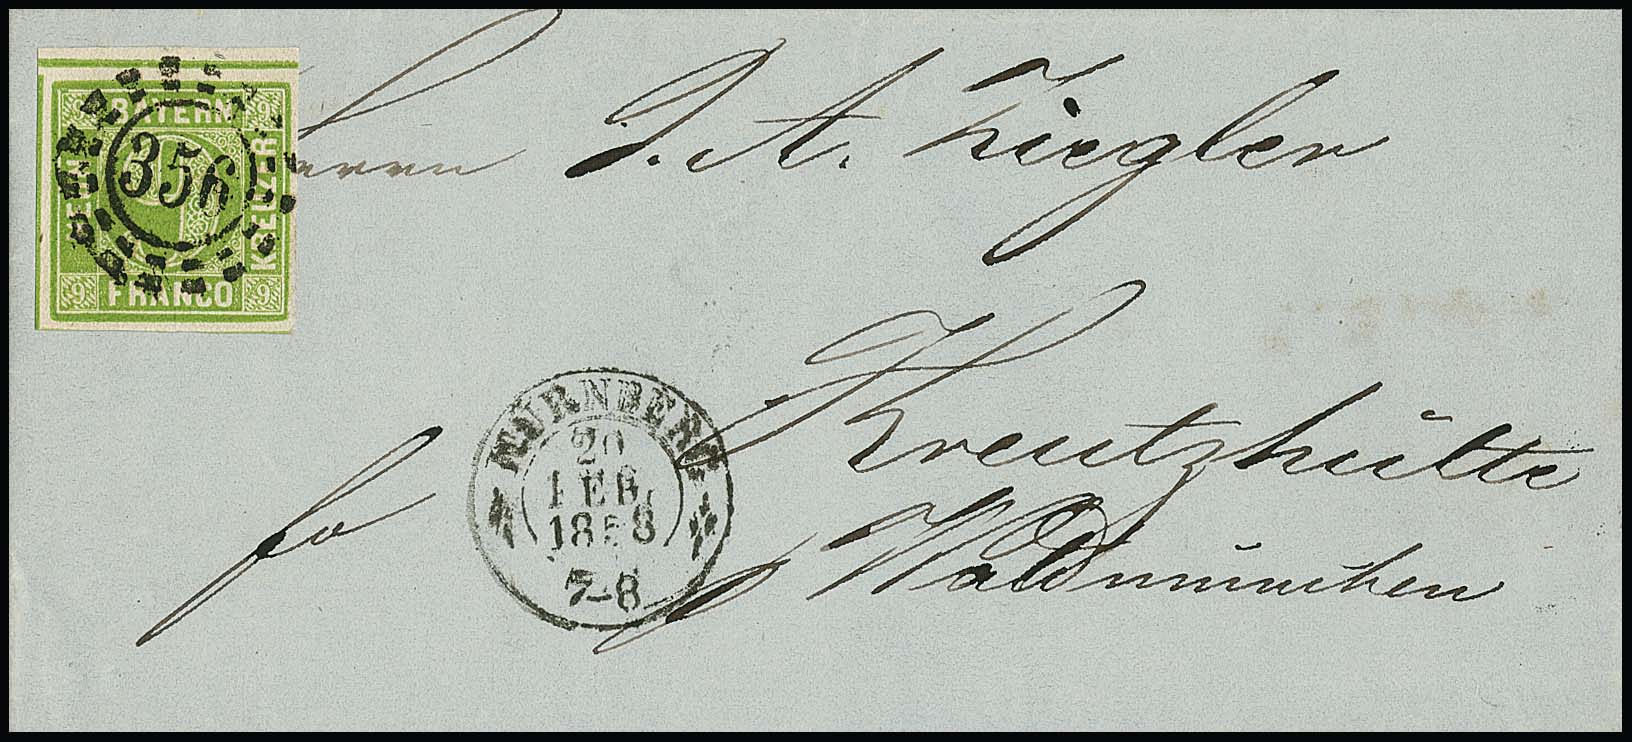 9 BAYERN 9
NEUN
356
KREUZER
9 FRANCO 9
Herrn J. A. Ziegler
Kreutzhütte
fo
p Waldmünchen
NÜRNBERG
20
FEB.
1858
7-8